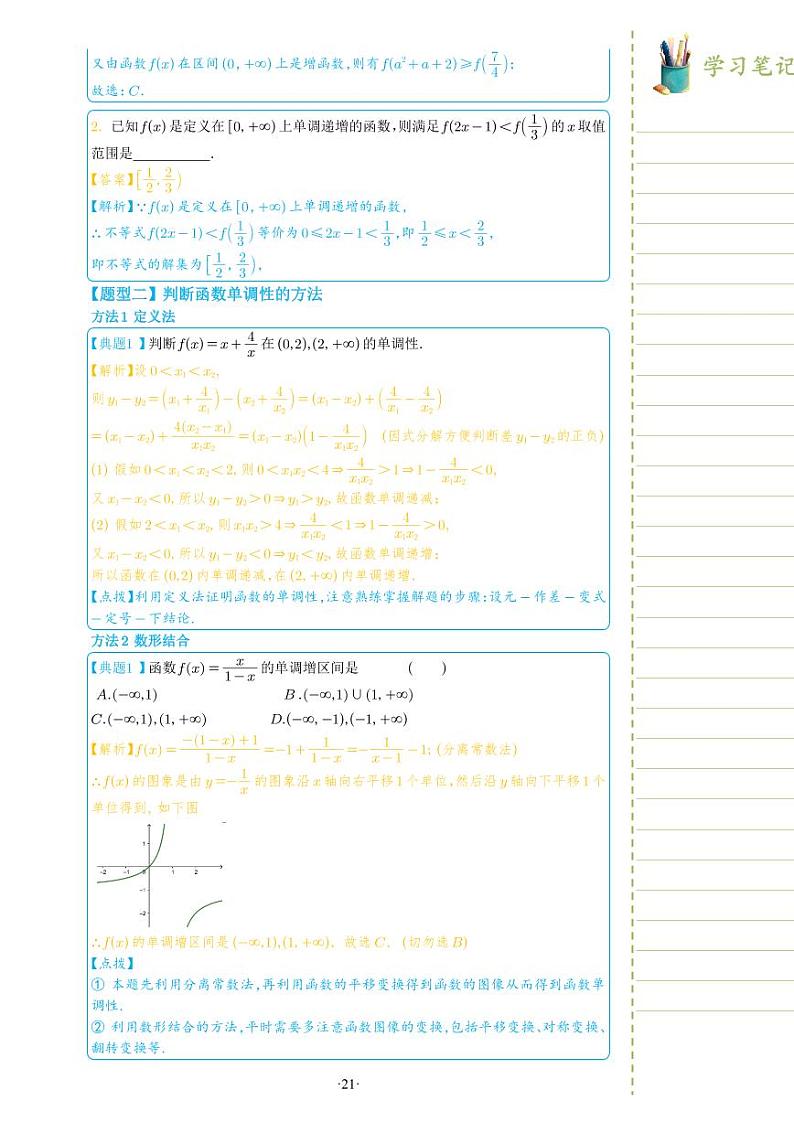 又由函数f(x)在区间(0, +∞)上是增函数,则有f(a²+a+2)⩾f(7/4);
故选: C.
学习笔记
2. 已知f(x)是定义在[0, +∞)上单调递增的函数,则满足f(2x−1)<f(1/3)的x取值
范围是__________.
【答案】[1/2, 2/3)
【解析】∵f(x)是定义在[0, +∞)上单调递增的函数,
∴不等式f(2x−1)<f(1/3)等价为0⩽2x−1<1/3,即1/2⩽x<2/3,
即不等式的解集为[1/2, 2/3),
【题型二】判断函数单调性的方法
方法1 定义法
【典题1】判断f(x)=x+4/x在(0,2),(2, +∞)的单调性.
【解析】设0<x₁<x₂,
则y₁−y₂=(x₁+4/x₁)−(x₂+4/x₂)=(x₁−x₂)+(4/x₁−4/x₂)
=(x₁−x₂)+4(x₂−x₁)/x₁x₂=(x₁−x₂)(1−4/x₁x₂) (因式分解方便判断差y₁−y₂的正负)
(1) 假如0<x₁<x₂<2, 则0<x₁x₂<4⇒4/x₁x₂>1⇒1−4/x₁x₂<0,
又x₁−x₂<0, 所以y₁−y₂>0⇒y₁>y₂, 故函数单调递减;
(2) 假如2<x₁<x₂, 则x₁x₂>4⇒4/x₁x₂<1⇒1−4/x₁x₂>0,
又x₁−x₂<0, 所以y₁−y₂<0⇒y₁<y₂, 故函数单调递增;
所以函数在(0,2)内单调递减,在(2, +∞)内单调递增.
【点拨】利用定义法证明函数的单调性,注意熟练掌握解题的步骤:设元−作差−变式
−定号−下结论.
方法2 数形结合
【典题1】函数f(x)=x/(1−x)的单调增区间是 ( )
A.(−∞,1) B.(−∞,1)∪(1, +∞)
C.(−∞,1),(1, +∞) D.(−∞, −1),(−1, +∞)
【解析】f(x)=(−(1−x)+1)/(1−x)=−1+1/(1−x)=−1/(x−1)−1; (分离常数法)
∴f(x)的图象是由y=−1/x的图象沿x轴向右平移1个单位,然后沿y轴向下平移1个
单位得到, 如下图
1
−2 −1 0 1 2
−1
−2
∴f(x)的单调增区间是(−∞,1),(1, +∞). 故选C. (切勿选B)
【点拨】
① 本题先利用分离常数法,再利用函数的平移变换得到函数的图像从而得到函数单
调性.
② 利用数形结合的方法,平时需要多注意函数图像的变换,包括平移变换、对称变换、
翻转变换等.
·21·